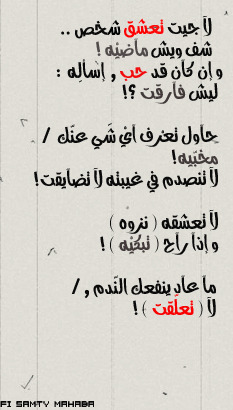 لآ جيت تعشق شخص ..
شف ويش مآضيّه !
و إن كآن قد حب , إسآله :
ليش فآرقت ؟!
حآول تعرف أيّ شَي عنّك /
مخبّيه!
لآ تنصدم في غيبته لآ تضآيقت!
لآ تعشقه ( نزوه )
و إذآ رآح ( تبكيّه ) !
مآ عآد ينفعك النّدم , /
لآ ( تعلّقت ) !
FI SAMTY MAHABA